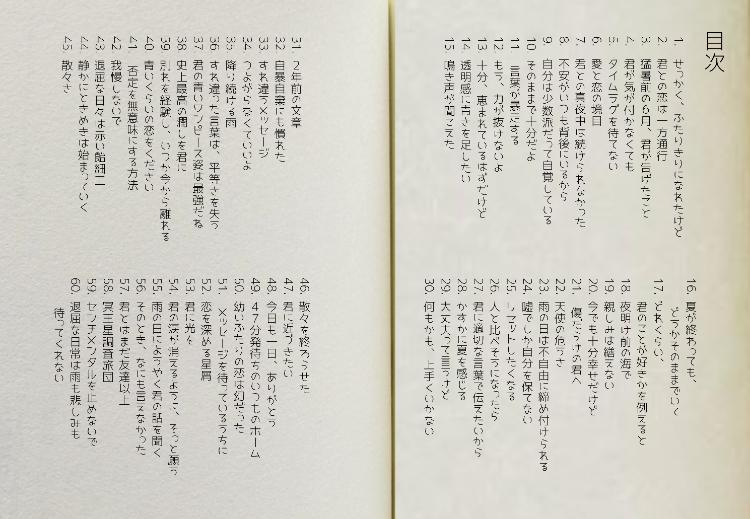 目次
1. せっかく、ふたりきりになれたけど
2. 君との恋は一方通行
3. 猛暑前の6月、君が告げたこと
4. 君が気が付かなくても
5. タイムラグを待てない
6. 愛と恋の境目
7. 君との真夜中は続けられなかった
8. 不安がいつも背後にいるから
9. 自分は少数派だって自覚している
10. そのままで十分だよ
11. 言葉が
12. もう、力が抜けないよ
13. 十分、恵まれているはずだけど
14. 透明感に青さを足したい
15. 鳴き声が聞こえた
16. 夏が終わっても、
どうかそのままでいて
17. どれくらい、
君のことが好きかを例えると
18. 夜明け前の海で
19. 親しみは増えない
20. 今でも十分幸せだけど
21. 傷だらけの君へ
22. 天使の危うさ
23. 雨の日は不自由に締め付けられる
24. 嘘でしか自分を保てない
25. リセットしたくなる
26. 人と比べそうになったら
27. 君に適切な言葉で伝えたいから
28. かすかに夏を感じる
29. 大丈夫って言うけど
30. 何もかも、上手くいかない
31. 2年前の文章
32. 自暴自棄にも慣れた
33. すれ違うメッセージ
34. つよがらなくていいよ
35. 降り続ける雨
36. すれ違った言葉は、平等さを失う
37. 君の青いワンピース姿は最強だね
38. 史上最高の潤しを君に
39. 別れを経験し、いつか今から離れる
40. 青いくらいの恋をください
41. 否定を無意味にする方法
42. 我慢しないで
43. 退屈な日々は赤い飴細工
44. 静かにときめきは始まっていく
45. 散々さ
46. 散々を終わらせた
47. 君に近づきたい
48. 今日も一日、ありがとう
49. 47分発待ちのいつものホーム
50. 幼いふたりの恋は幻だった
51. メッセージを待っているうちに
52. 恋を深める星屑
53. 君に光を
54. 君の涙が消えるように、そっと願う
55. 雨の日にようやく君の話を聞く
56. そのとき、なにも言えなかった
57. 君とはまだ友達以上
58. 冥王星調査旅団
59. センチメンタルを止めないで
60. 退屈な日常は雨も悲しみも
待ってくれない